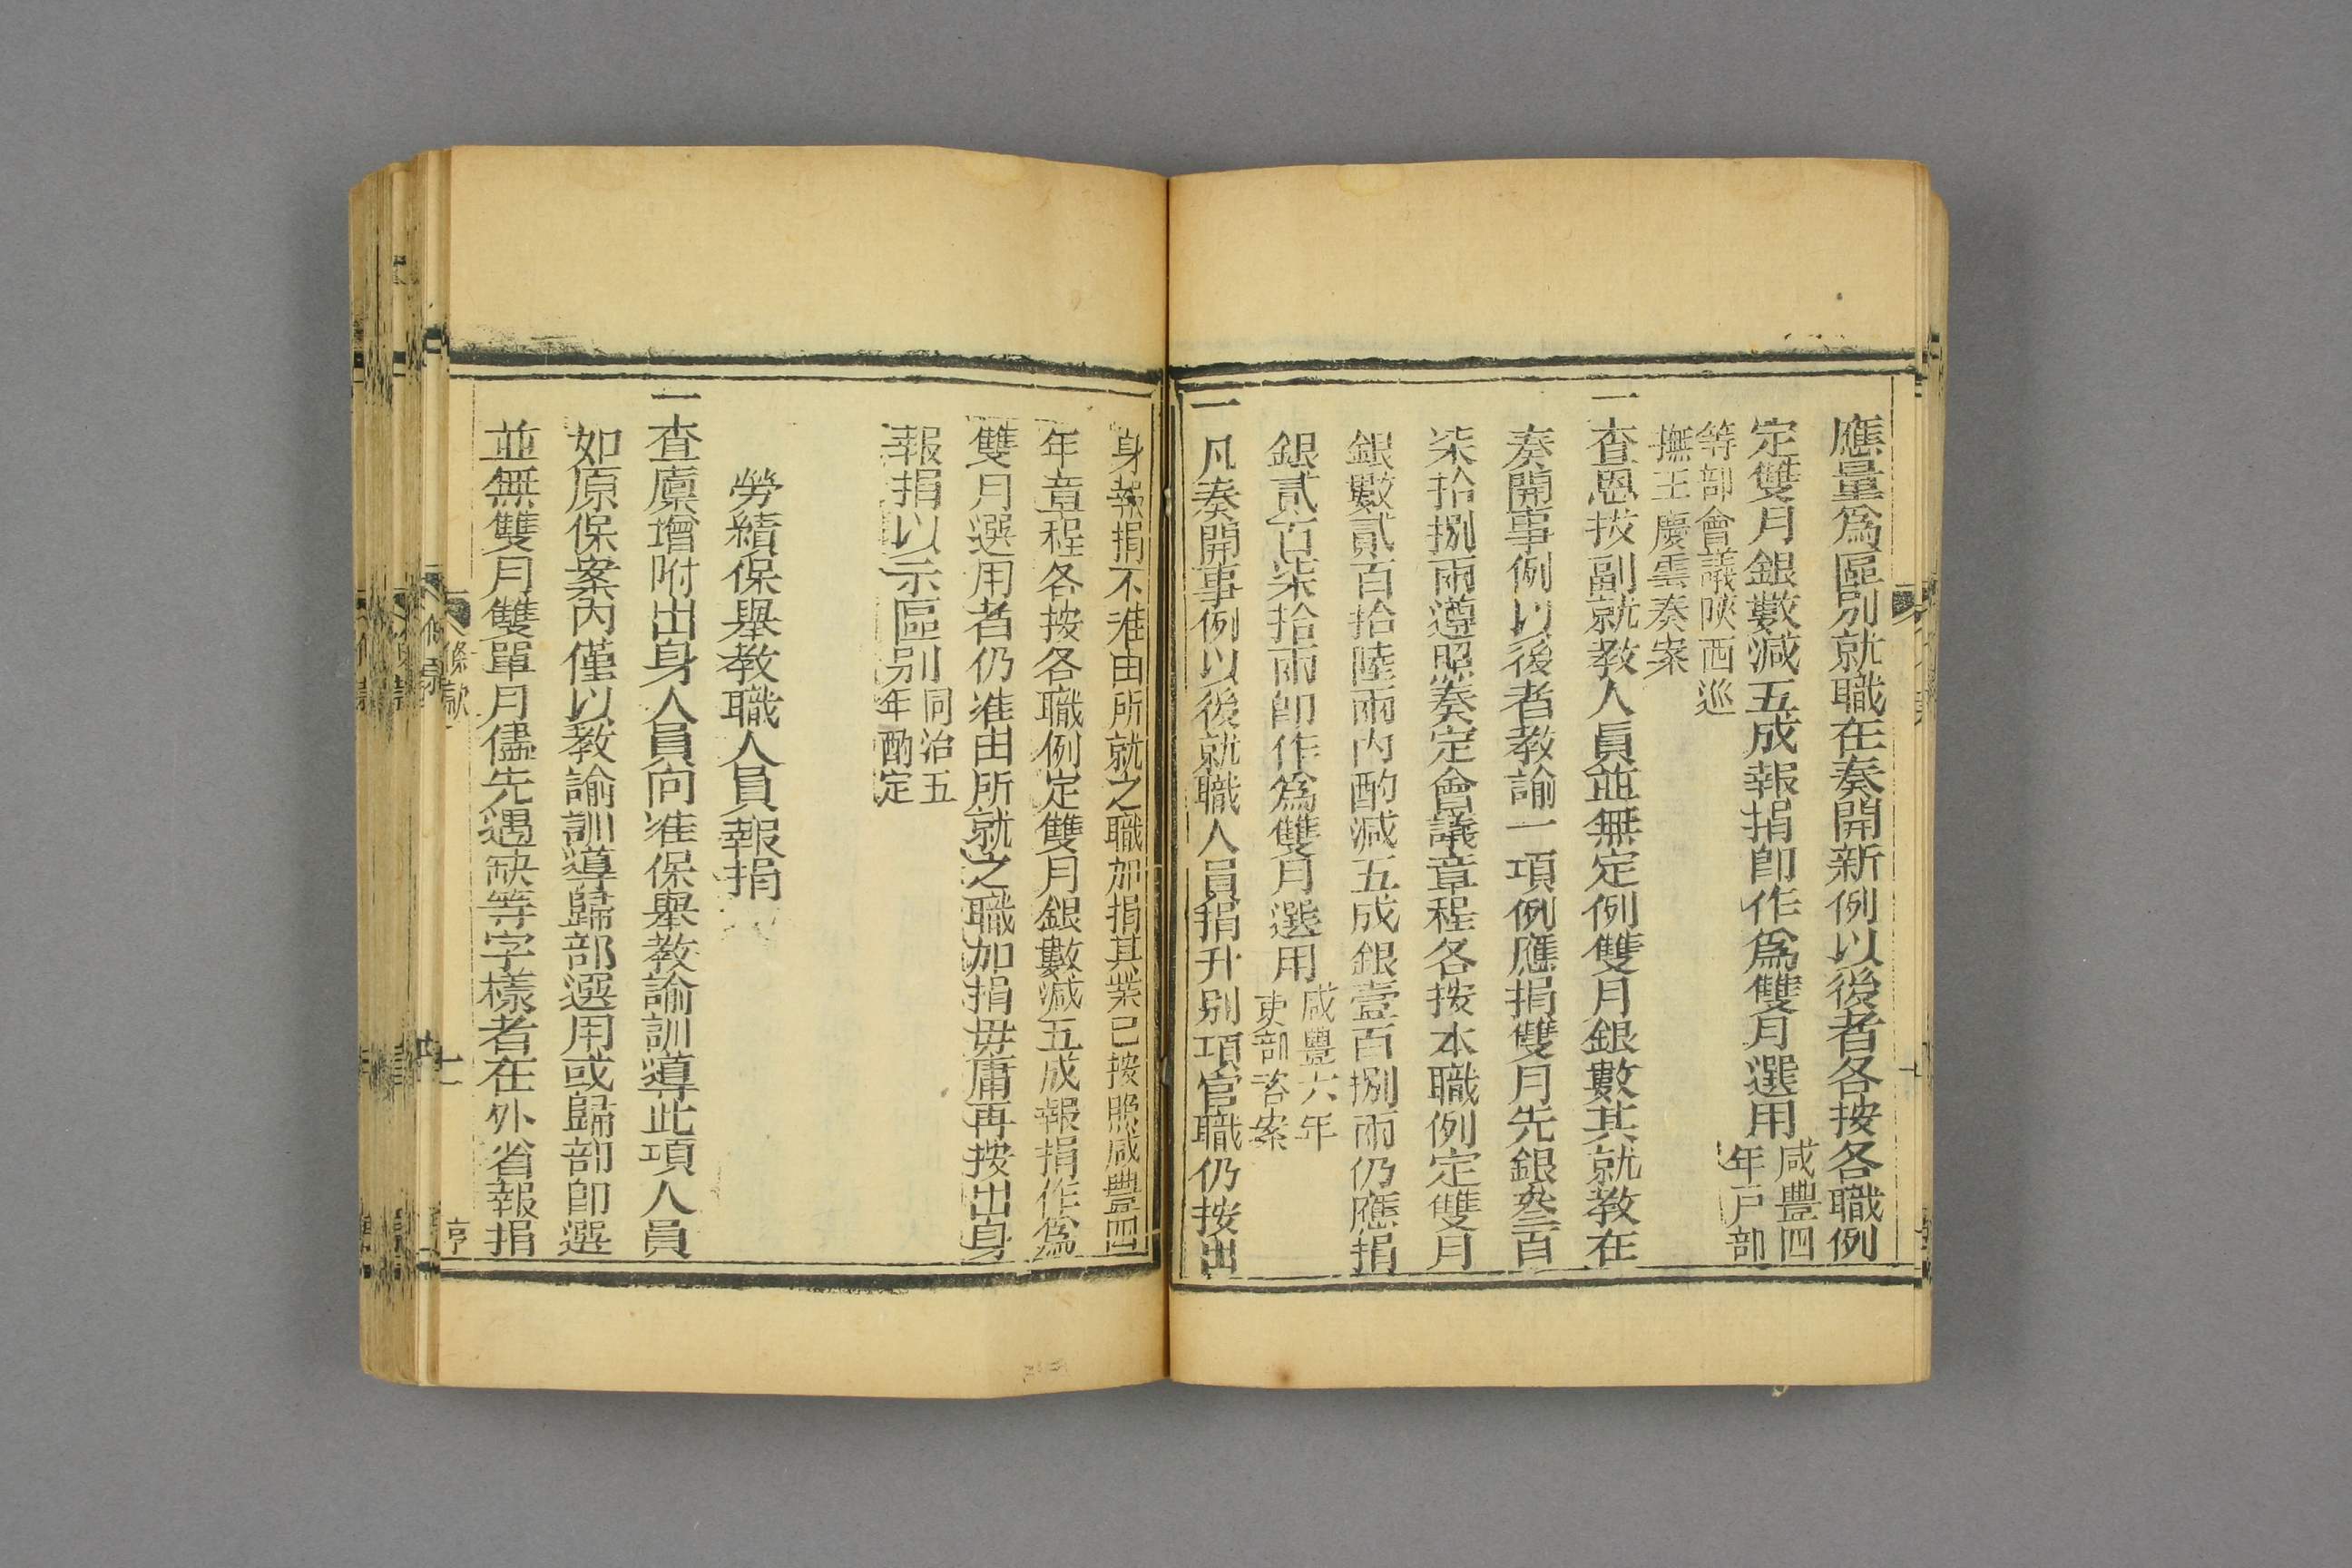 應量爲區別就職在奏開新例以後者各按各職例
定雙月銀數減五成報捐卽作爲雙月選用咸豐四年戸部
等部會議陝西巡
撫王慶雲奏案
一查恩拔副就教人員並無定例雙月銀數其就教在
奏開事例以後者教諭一項例應捐雙月先銀叁百
柒拾捌兩遵照奏定會議章程各按本職例定雙月
銀數貳百拾陸兩內酌減五成銀壹百捌兩仍應捐
銀貳百柒拾兩卽作爲雙月選用咸豐六年吏部咨案
一凡奏開事例以後就職人員捐升别項官職仍按出
身報捐不准由所就之職加捐其業已按照咸豐四
年章程各按各職例定雙月銀數減五成報捐作爲
雙月選用者仍准由所就之職加捐毋庸再按出身
報捐以示區别同治五年酌定
勞績保舉教職人員報捐
一查廩增附出身人員向准保舉教諭訓導此項人員
如原保案內僅以教諭訓導歸部選用或歸部卽選
並無雙月雙單月儘先遇缺等字樣者在外省報捐
條款
十一
亨